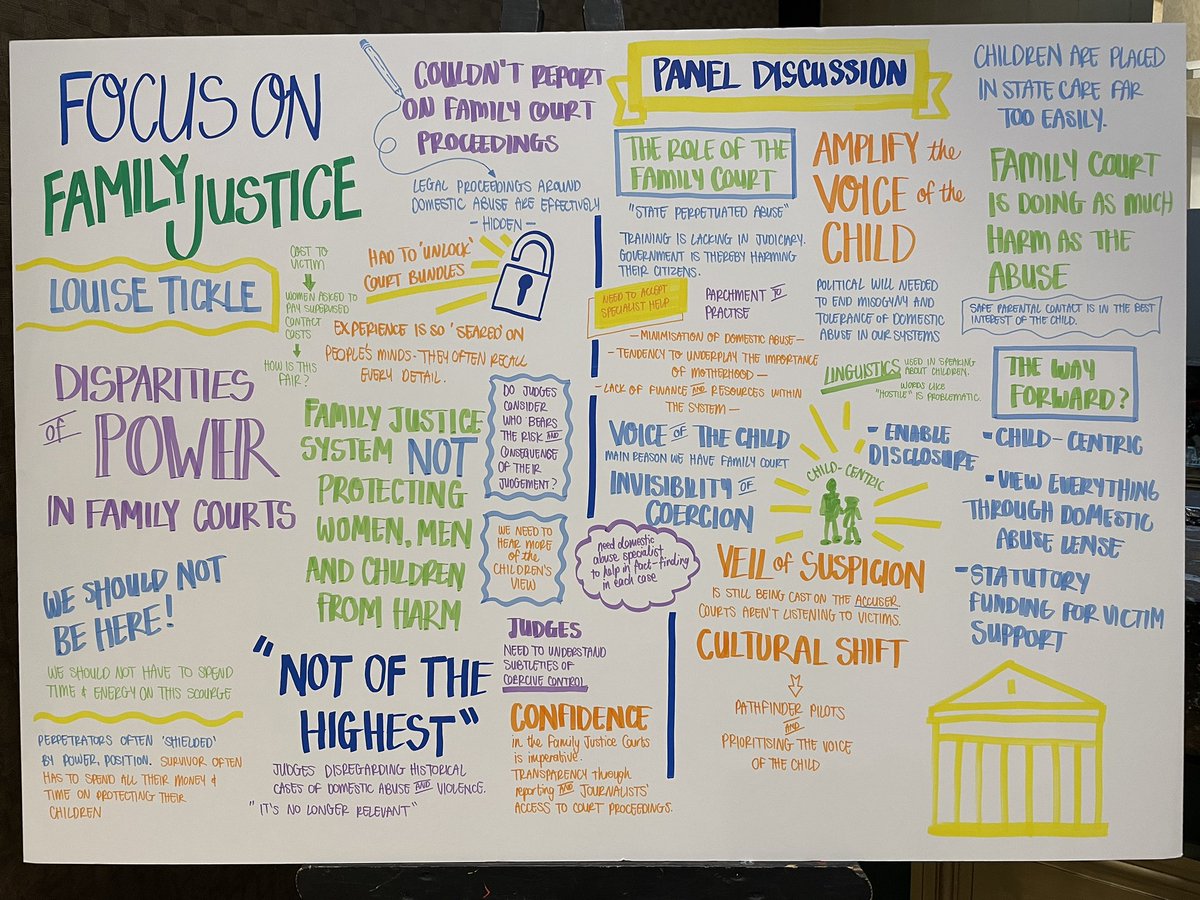 FOCUS ON
FAMILY JUSTICE
LOUISE TICKLE
DISPARITIES
OF POWER
IN FAMILY COURTS
WE SHOULD NOT
BE HERE!
WE SHOULD NOT HAVE TO SPEND
TIME & ENERGY ON THIS SCOURGE
PERPETRATORS OFTEN 'SHIELDED'
BY POWER, POSITION. SURVIVOR OFTEN
HAS TO SPEND ALL THEIR MONEY &
TIME ON PROTECTING THEIR
CHILDREN
COULDN'T REPORT
ON FAMILY COURT
PROCEEDINGS
LEGAL PROCEEDINGS AROUND
DOMESTIC ABUSE ARE EFFECTIVELY
- HIDDEN -
COST TO
VICTIM
WOMEN ASKED TO
PAY SUPERVISED
CONTACT
COSTS
HOW IS THIS
FAIR?
HAD TO 'UNLOCK'
COURT BUNDLES
EXPERIENCE IS SO 'SEARED' ON
PEOPLE'S MINDS - THEY OFTEN RECALL
EVERY DETAIL.
FAMILY JUSTICE
SYSTEM NOT
PROTECTING
WOMEN, MEN
AND CHILDREN
FROM HARM
DO JUDGES
CONSIDER
WHO BEARS
THE RISK AND
CONSEQUENCE
OF THEIR
JUDGEMENT?
WE NEED TO
HEAR MORE
of the
CHILDREN'S
VIEW
"NOT OF THE
HIGHEST"
JUDGES DISREGARDING HISTORICAL
CASES OF DOMESTIC ABUSE AND VIOLENCE.
"IT'S NO LONGER RELEVANT"
JUDGES
NEED TO UNDERSTAND
SUBTLETIES OF
COERCIVE CONTROL
CONFIDENCE
in the Family Justice Courts
is imperative.
TRANSPARENCY through
reporting AND JOURNALISTS'
ACCESS TO COURT PROCEEDINGS.
PANEL DISCUSSION
THE ROLE OF THE
FAMILY COURT
"STATE PERPETUATED ABUSE"
TRAINING IS LACKING IN JUDICIARY.
GOVERNMENT IS THEREBY HARMING
THEIR CITIZENS.
NEED TO ACCEPT
SPECIALIST HELP
PARCHMENT TO
PRACTISE
- MINIMISATION OF DOMESTIC ABUSE -
- TENDENCY TO UNDERPLAY THE IMPORTANCE
OF MOTHERHOOD -
- LACK OF FINANCE AND RESOURCES WITHIN
THE SYSTEM -
VOICE OF THE CHILD
MAIN REASON WE HAVE FAMILY COURT
INVISIBILITY OF
COERCION
need domestic
abuse specialist
to help in fact-finding
in each case
AMPLIFY the
VOICE of the
CHILD
POLITICAL WILL NEEDED
TO END MISOGYNY AND
TOLERANCE OF DOMESTIC
ABUSE IN OUR SYSTEMS
LINGUISTICS USED IN SPEAKING
ABOUT CHILDREN.
WORDS LIKE
"HOSTILE" IS PROBLEMATIC.
CHILD-CENTRIC
- ENABLE
DISCLOSURE
VEIL of SUSPICION
IS STILL BEING CAST ON THE ACCUSER.
COURTS AREN'T LISTENING TO VICTIMS.
CULTURAL SHIFT
PATHFINDER PILOTS
AND
PRIORITISING THE VOICE
OF THE CHILD
CHILDREN ARE PLACED
IN STATE CARE FAR
TOO EASILY.
FAMILY COURT
IS DOING AS MUCH
HARM AS THE
ABUSE
SAFE PARENTAL CONTACT IS IN THE BEST
INTEREST OF THE CHILD.
THE WAY
FORWARD?
- CHILD-CENTRIC
- VIEW EVERYTHING
THROUGH DOMESTIC
ABUSE LENSE
- STATUTORY
FUNDING FOR VICTIM
SUPPORT